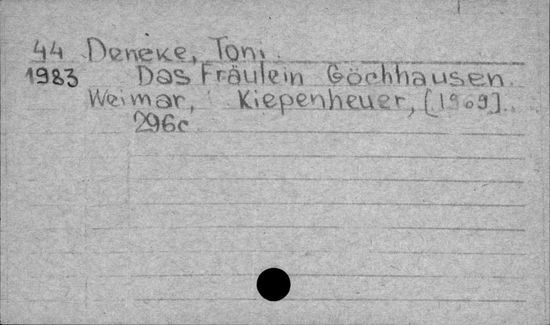 44 Deneke, Toni
1983 Das Fräulein Göchhausen.
Weimar, Kiepenheuer, [1909].
296c